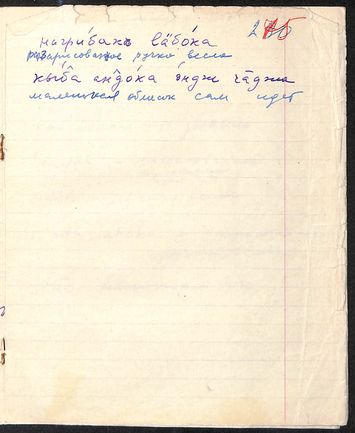 нагри́бакъ вӓбо́ка
разрисованное ручко весло
кы́ба̄ андо́ка ондж ча̄джа
маленькая обласок сам идет